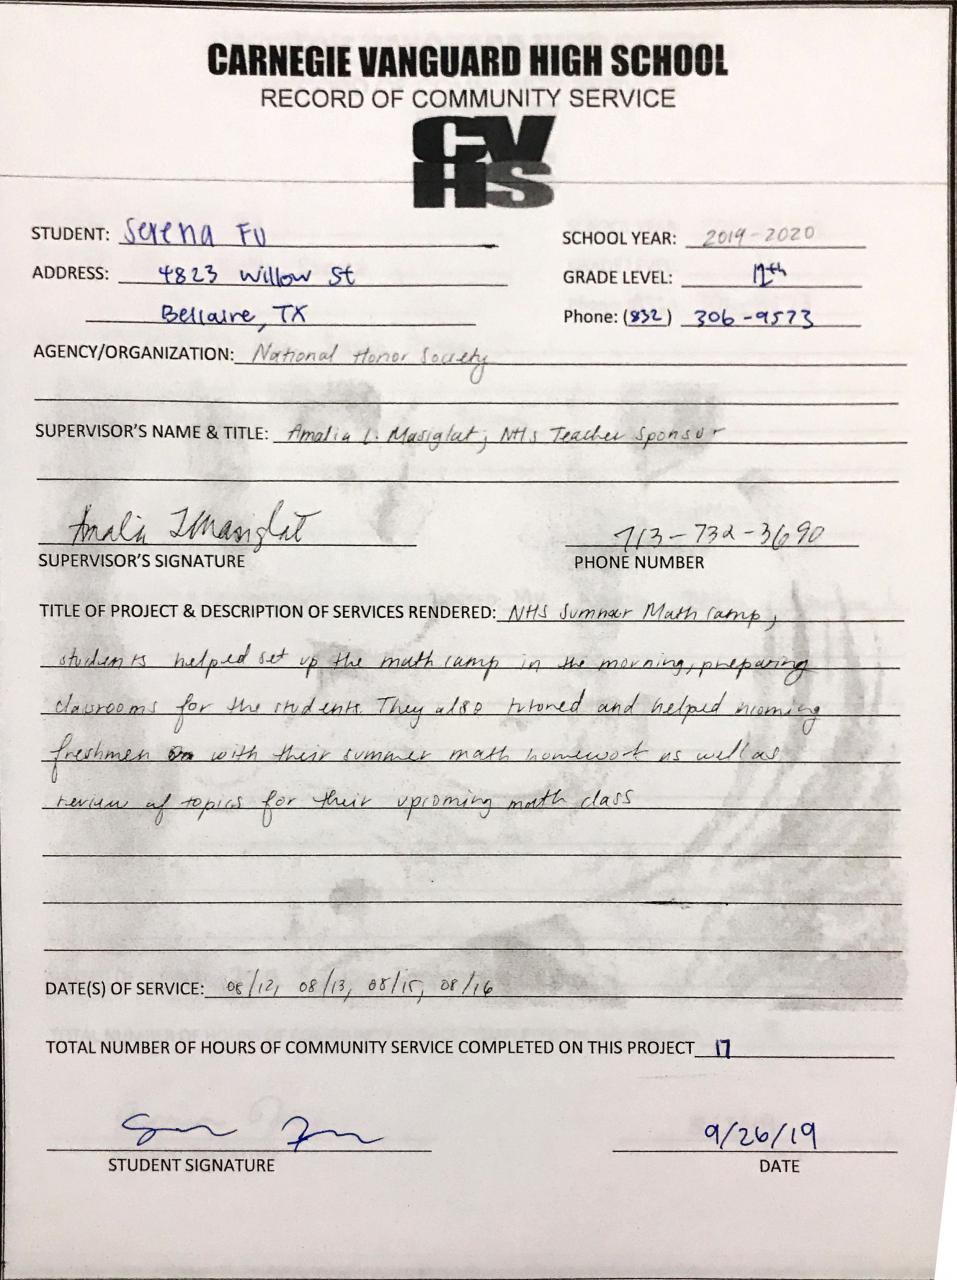 CARNEGIE VANGUARD HIGH SCHOOL
RECORD OF COMMUNITY SERVICE
CV
HS
STUDENT: Serena Fu
SCHOOL YEAR: 2019-2020
ADDRESS: 4823 Willow St
GRADE LEVEL: 12th
Bellaire, TX
Phone: (832) 306-9573
AGENCY/ORGANIZATION: National Honor Society
SUPERVISOR'S NAME & TITLE: Amalia L. Masiglat, NHS Teacher Sponsor
Amalia L Masiglat
713-732-3690
SUPERVISOR'S SIGNATURE
PHONE NUMBER
TITLE OF PROJECT & DESCRIPTION OF SERVICES RENDERED: NHS Summer Math Camp,
students helped set up the math camp in the morning, preparing
classrooms for the students. They also tutored and helped incoming
freshmen with their summer math homework as well as
review of topics for their upcoming math class
DATE(S) OF SERVICE: 08/12, 08/13, 08/15, 08/16
TOTAL NUMBER OF HOURS OF COMMUNITY SERVICE COMPLETED ON THIS PROJECT 17
9/26/19
STUDENT SIGNATURE
DATE